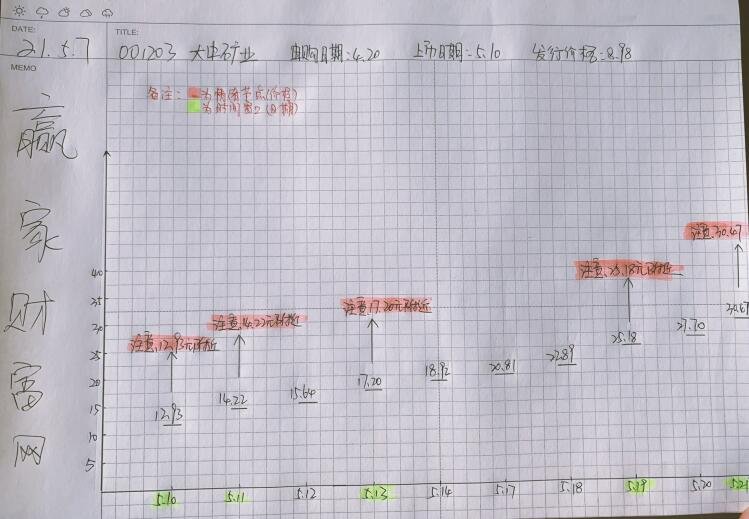 DATE:
21.5.7
TITLE:
001203 大中矿业 申购日期:4.20 上市日期:5.10 发行价格:8.98
MEMO
赢家财富网
备注:
为时间窗口(日期)
注意.30.47
注意.25.18元附近
注意.17.20元附近
注意.14.22元附近
注意.12.93元附近
40
35
30
25
20
15
10
5
12.93
14.22
15.64
17.20
18.92
20.81
22.89
25.18
27.70
30.47
5.10
5.11
5.12
5.13
5.14
5.17
5.18
5.19
5.20
5.21